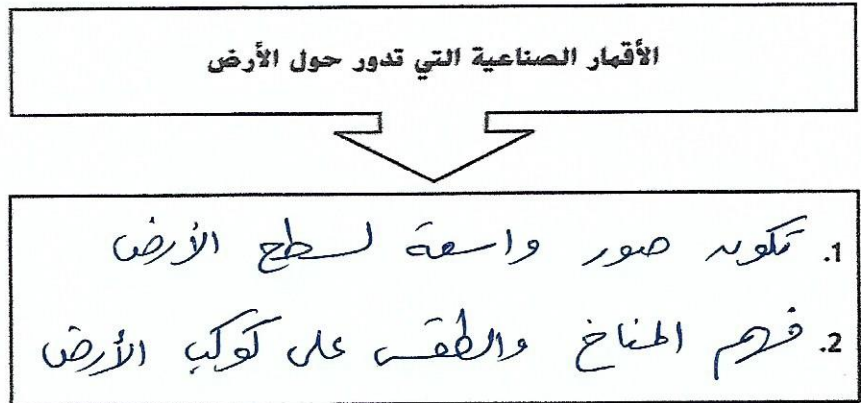 الأقمار الصناعية التي تدور حول الأرض
1. تكون صور واسعة لسطح الأرض
2. فهم المناخ والطقس على كوكب الأرض